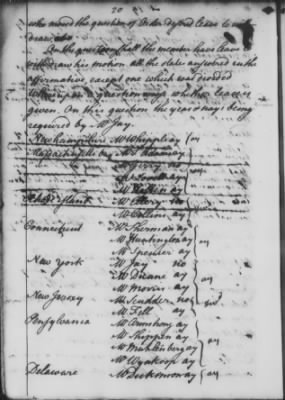 20
who moved the question of order desired leave to with
draw
On the question shall the member have leave to
withdraw his motion all the states answered in the
affirmative, except one which was divided
Whereupon a question was whether leave is
given. On this question the yeas & nays being
required by Mr Jay
New hampshire Mr Whipple ay } ay
Massachusetts bay Mr
Mr Gerry no
Mr Lovell ay
Mr Holten ay
Rhode island Mr Ellery no
Mr Collins ay
Connecticut Mr Sherman ay
Mr Huntington ay } ay
Mr Spencer ay
New York Mr Jay no
Mr Duane ay } ay
Mr Morris ay
New Jersey Mr Scudder no
Mr Fell ay
Pensylvania Mr Armstrong ay
Mr Shippen ay
Mr Muhlenberg ay } ay
Mr Wynkoop ay
Delaware Mr Dickinson ay } ay